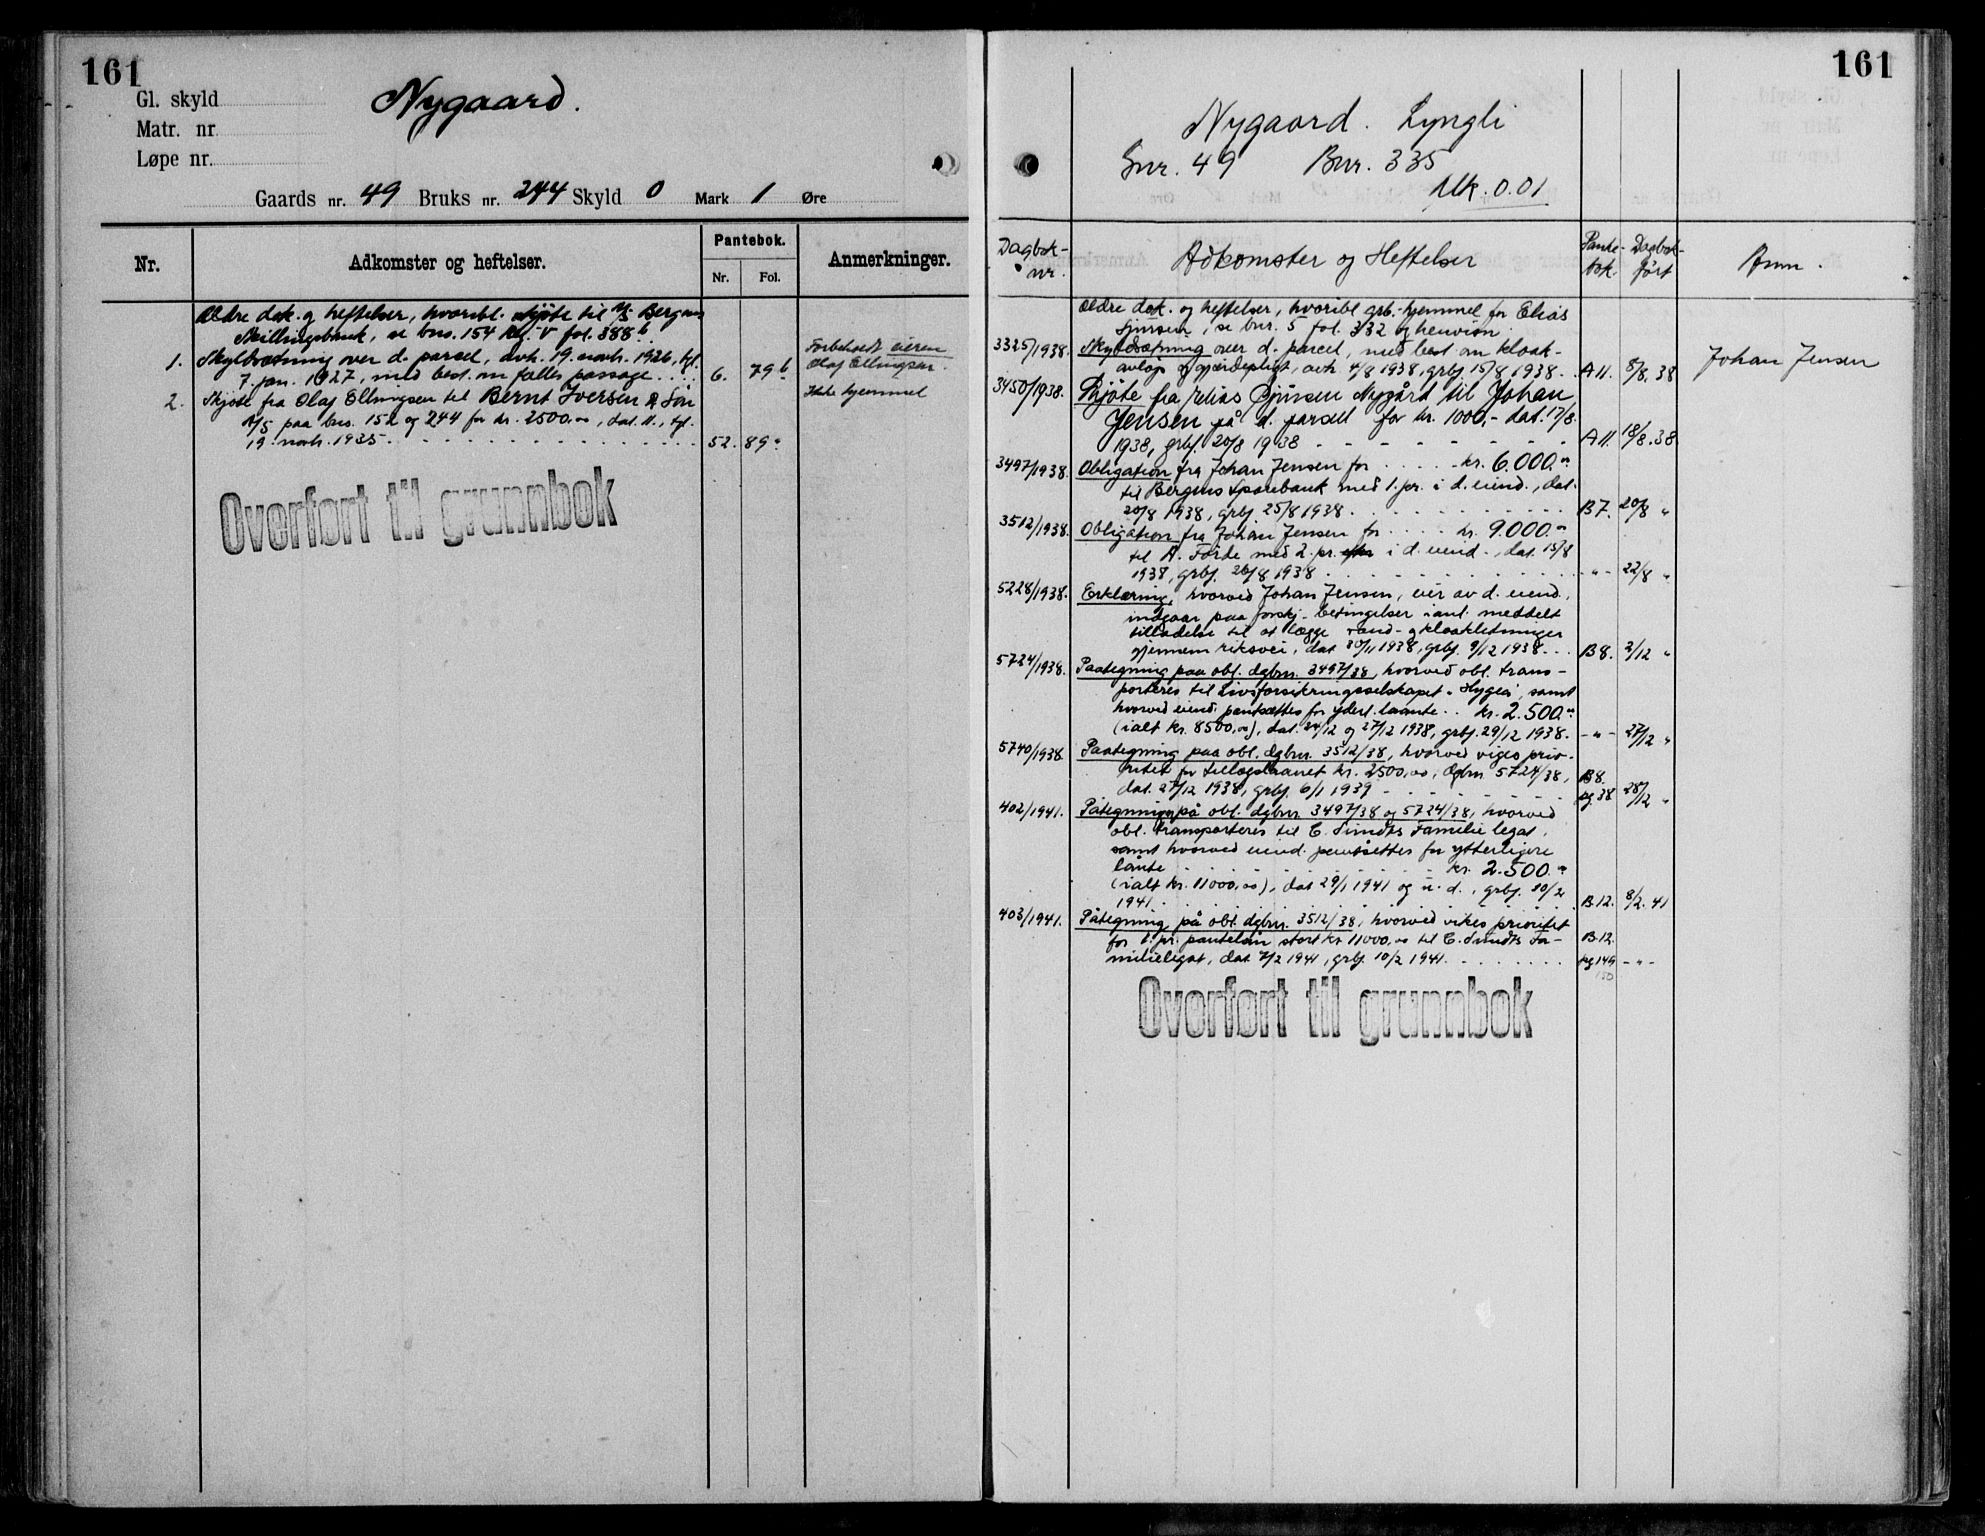 161
Gl. skyld
Nygaard.
Matr. nr.
Løpe nr.
Gaards nr. 49 Bruks nr. 244 Skyld 0 Mark 1 Øre
Nr.
Adkomster og heftelser.
Pantebok.
Nr. Fol.
Anmerkninger.
Ældre dok. og heftelser, hvoribl. skjøte til A/S Bergens
Skillingsbank, se bnr. 154 Reg. V fol. 388 b.
1. Skyldsætning over d. parsel, avh. 19. novb. 1926, tgl.
7. jan. 1927, med best. om fælles passage.... 6. 79 b
Forbeholdt eieren
Olaf Ellingsen.
2. Skjøte fra Olaf Ellingsen til Bernt Iversen & Søn
A/S paa bnr. 152 og 244 for kr. 2500.00, dat. d., tgl.
19. novb. 1935 - - - - 52. 89 a
Ikke hjemmel
Overført til grunnbok
161
Nygaard. Lyngli
Gnr. 49 Bnr. 335
Mk. 0.01
Dagbok-
nr.
Adkomster og Heftelser
Pante-
bok.
Dagbok-
ført
Anm.
Ældre dok. og heftelser, hvoribl. grb.-hjemmel for Elias
Gjersen, se bnr. 5 fol. 332 og henvisn.
3325/1938. Skyldsætning over d. parcel, med best om kloak-
avløp og gjærdepligt, avh. 4/8 1938, grbf. 15/8 1938.. A11. 8/8. 38
Johan Jensen
3450/1938. Skjøte fra Elias Nygård til Johan
Jensen på d. parsell for kr. 1000,- dat. 17/8
1938, grbf. 20/8 1938 - - - - A11. 18/8.38
3497/1938. Obligation fra Johan Jensen for ..... kr. 6.000.00
til Bergens Sparebank med 1. pr. i d. eiend., dat.
20/8 1938, grbf. 25/8 1938 ..... B7. 20/8 "
3512/1938. Obligation fra Johan Jensen for ..... kr. 9.000.00
til A. Førde med 2. pr. i d. eiend., dat. 15/8
1938, grbf. 26/8 1938 ..... - " - 22/8 "
5228/1938. Erklæring, hvorved Johan Jensen, eier av d. eiend.,
indgaar paa forskj. betingelser i anl. meddelt
tilladelse til at lægge vand- og kloakledninger
gjennem riksvei, dat 30/11 1938, grbf. 9/12 1938... B8. 2/12 "
5724/1938. Paategning paa obl. dgbnr. 3497/38, hvorved obl. trans-
porteres til Livsforsikringsselskapet "Hygea", samt
hvorved eiend. pantsættes for yderl. laante.. kr. 2.500.00
(ialt kr. 8500,00), dat. 24/12 og 27/12 1938, grbf. 29/12 1938. - " - 27/12 "
5740/1938. Paategning paa obl. dgbnr. 3512/38, hvorved viges prio-
ritet for tillægslaanet kr. 2500,00, dgbnr 5724/38, B8.
dat. 27/12 1938, grbf. 6/1 1939 - - - - pg 38 28/12 "
402/1941. Påtegning på obl. dgbnr. 3497/38 og 5724/38, hvorved
obl. transporteres til C. Sundts Familielegat,
samt hvorved eiend. pantsettes for ytterligere
lånte ..... kr. 2.500.00
(ialt kr. 11000,00), dat 29/1 1941 og u. d., grbf. 10/2
1941 ..... B.12. 8/2. 41
403/1941. Påtegning på obl. dgbnr. 3512/38, hvorved vikes prioritet
for 1. pr. pantelån stort kr 11000,00 til C. Sundts Fa- B.12.
milielegat, dat 7/2 1941, grbf. 10/2 1941. ..... pg 149 - " -
150
Overført til grunnbok